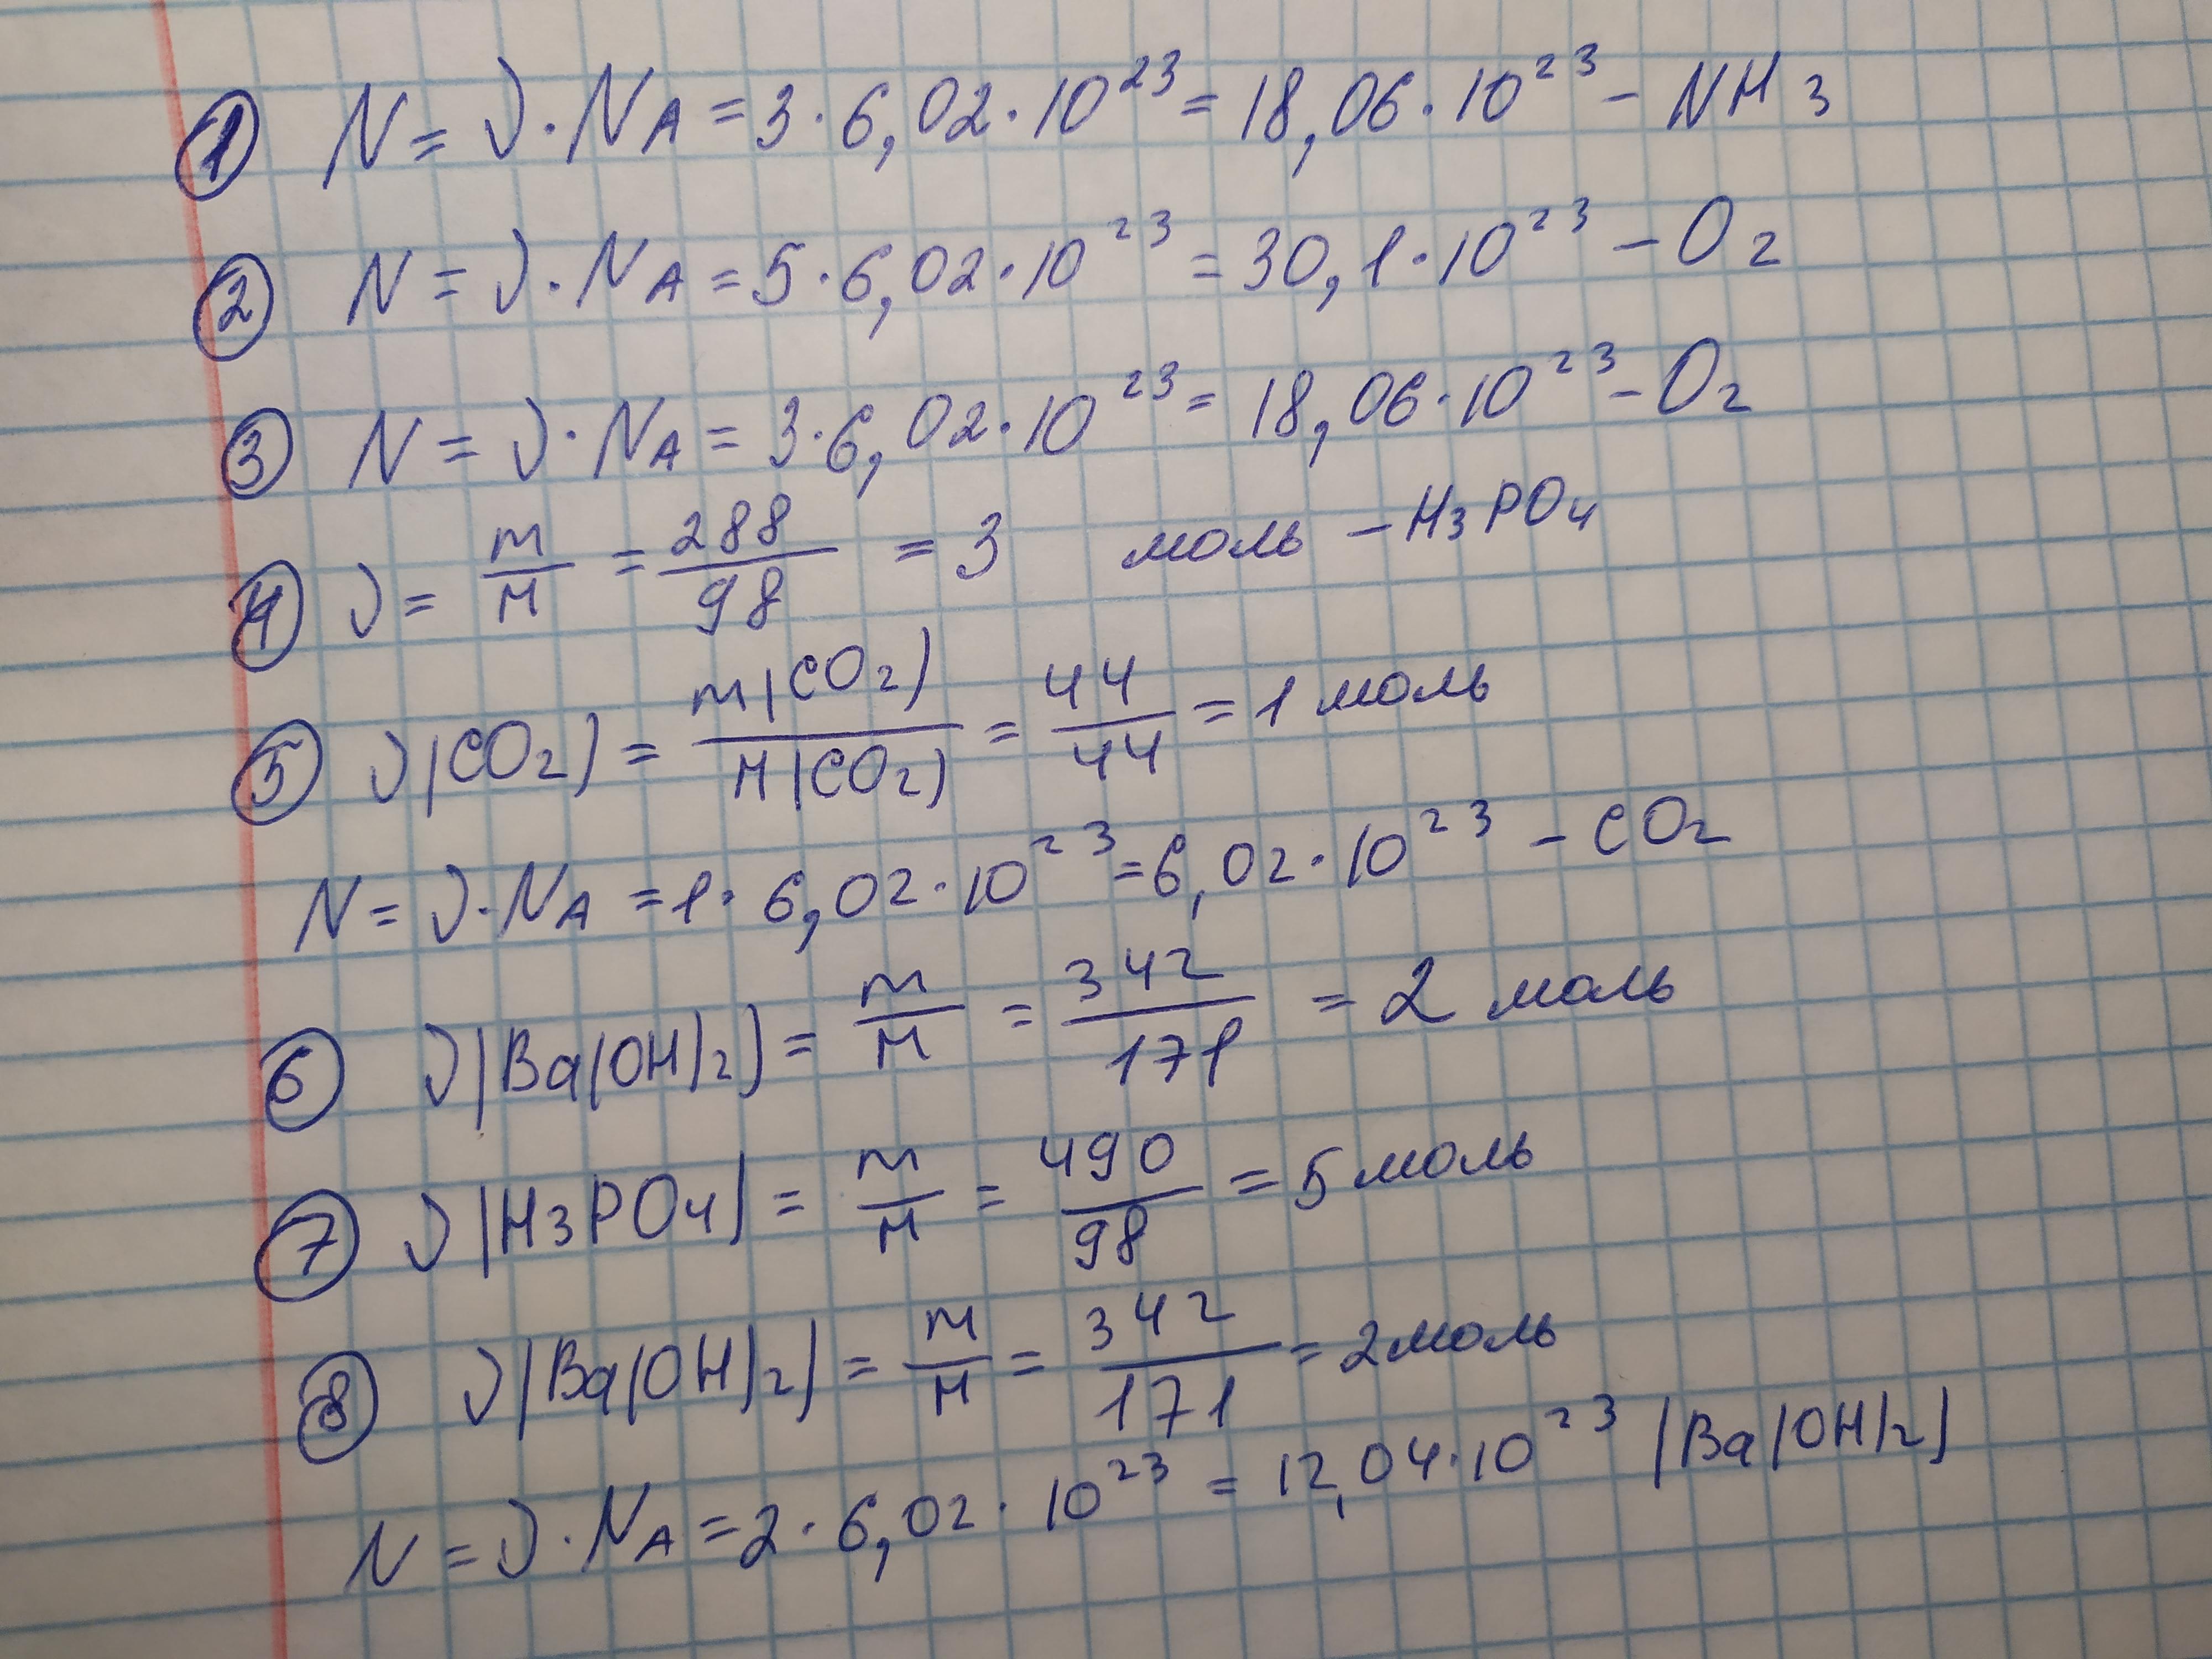 ① N = ν · NA = 3 · 6,02 · 10²³ = 18,06 · 10²³ – NH3
② N = ν · NA = 5 · 6,02 · 10²³ = 30,1 · 10²³ – O2
③ N = ν · NA = 3 · 6,02 · 10²³ = 18,06 · 10²³ – O2
④ ν = m/M = 288/98 = 3 моль – H3PO4
⑤ ν(CO2) = m(CO2)/M(CO2) = 44/44 = 1 моль
N = ν · NA = 1 · 6,02 · 10²³ = 6,02 · 10²³ – CO2
⑥ ν(Ba(OH)2) = m/M = 342/171 = 2 моль
⑦ ν(H3PO4) = m/M = 490/98 = 5 моль
⑧ ν(Ba(OH)2) = m/M = 342/171 = 2 моль
N = ν · NA = 2 · 6,02 · 10²³ = 12,04 · 10²³ (Ba(OH)2)